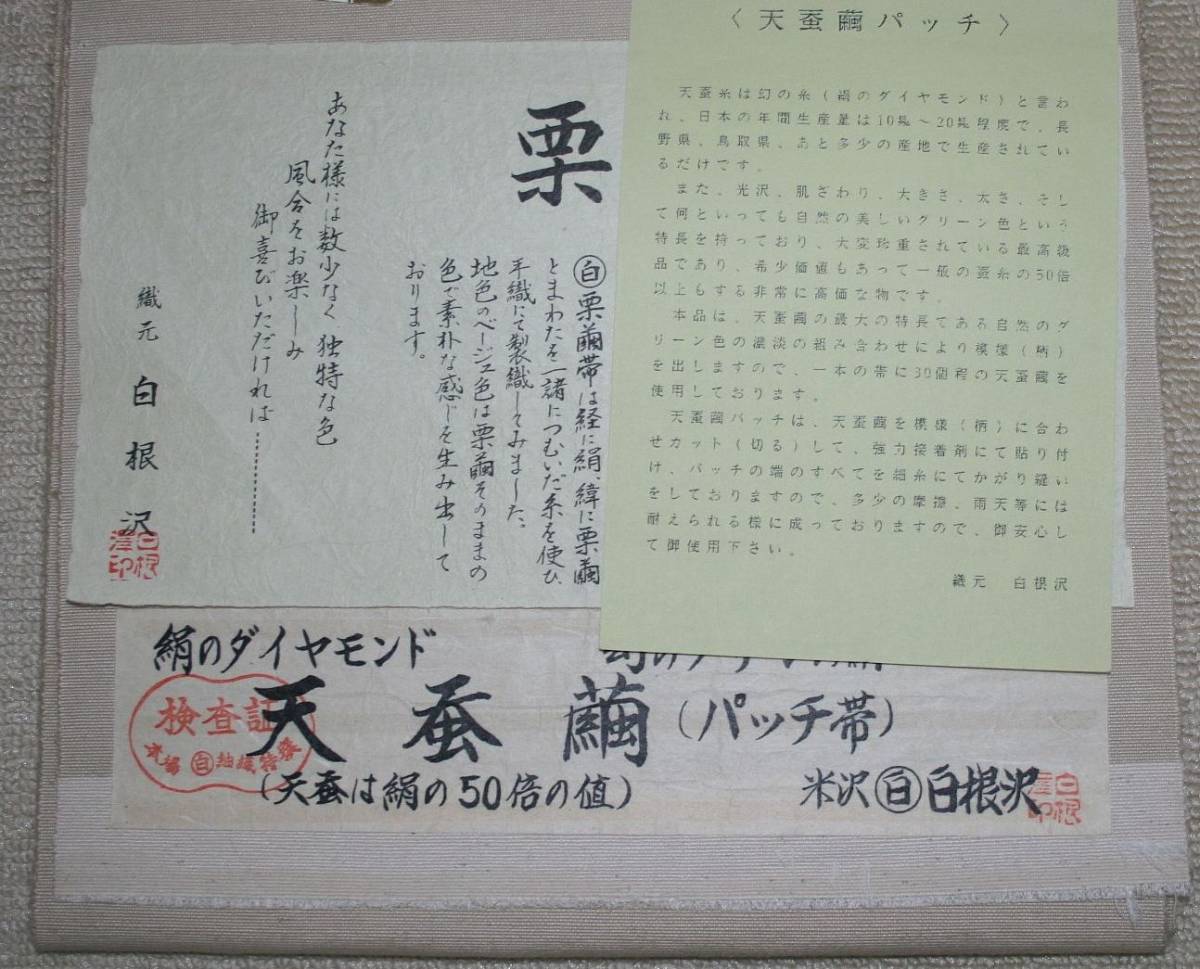 〈天蚕繭パッチ〉
天蚕糸は幻の糸(絹のダイヤモンド)と言わ
れ、日本の年間生産量は10㎏~20㎏程度で、長
野県、鳥取県、あと多少の産地で生産されてい
るだけです。
また、光沢、肌ざわり、大きさ、太さ、そし
て何といっても自然の美しいグリーン色という
特長を持っており、大変珍重されている最高級
品であり、希少価値もあって一般の蚕糸の50倍
以上もする非常に高価な物です。
本品は、天蚕繭の最大の特長である自然のグ
リーン色の濃淡の組み合わせにより模様(柄)
を出しますので、一本の帯に30個程の天蚕繭を
使用しております。
天蚕繭パッチは、天蚕繭を模様(柄)に合わ
せカット(切る)して、強力接着剤にて貼り付
け、パッチの端のすべてを絹糸にてかがり縫い
をしておりますので、多少の摩擦、雨天等には
耐えられる様に成っておりますので、御安心し
て御使用下さい。
織元 白根沢
栗
㊐栗繭帯は経に絹、緯に栗繭
とまわたを一諸につむいだ糸を使ひ
手織にて製織してみました。
地色のベージュ色は栗繭そのままの
色で素朴な感じを生み出して
おります。
あなた様には数少なく独特な色
風合をお楽しみ
御喜びいただければ………
織元 白根沢
白根澤印
絹のダイヤモンド
天蚕繭(パッチ帯)
(天蚕は絹の50倍の値)
米沢 白 白根沢
検査証
白根澤印